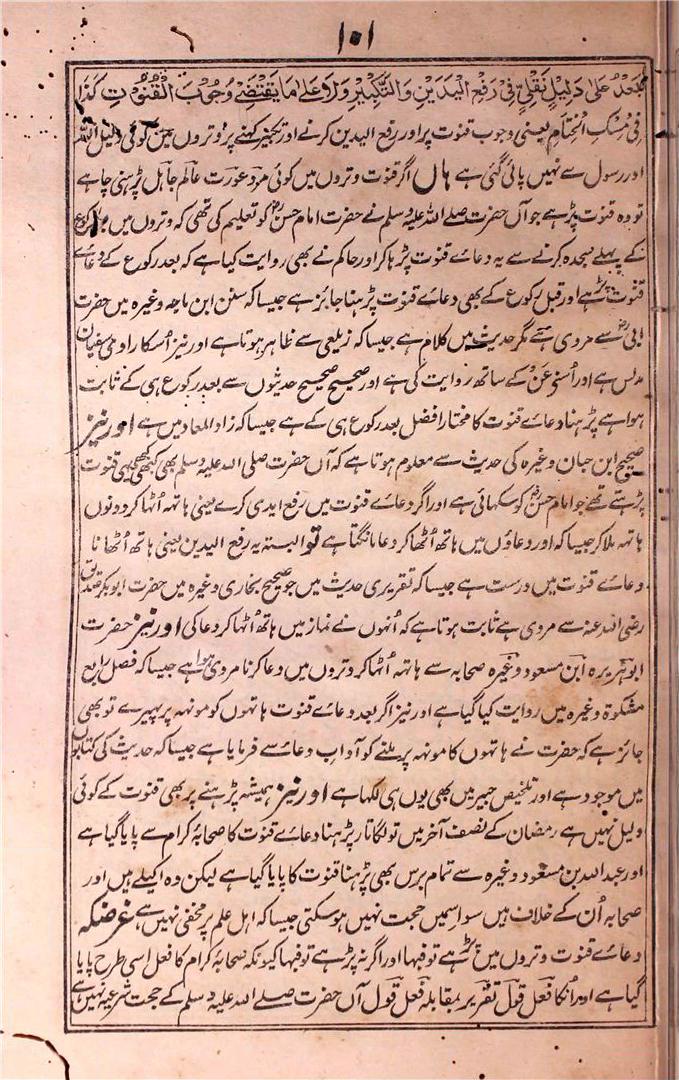 ۱۰۱
نجد علی دلیل نقلی فی رفع الیدین والتکبیر ولا علی ما یقتضی وجوب القنوت کذا
فی مسک الختام یعنی وجوب قنوت پر اور رفع الیدین کرنے اور تکبیر کہنے پر وتروں میں کوئی دلیل اللہ
اور رسول سے نہیں پائی گئی ہے ہاں اگر قنوت وتروں میں کوئی مرد عورت عالم جاہل پڑہنی چاہے
تو وہ قنوت پڑہے جو آں حضرت صلے اللہ علیہ وسلم نے حضرت امام حسنؓ کو تعلیم کی تھی کہ وتروں میں بعد رکوع
کے پہلے سجدہ کرنے سے یہ دعاے قنوت پڑہا کر اور حاکم نے بھی روایت کیا ہے کہ بعد رکوع کے دعاے
قنوت پڑہے اور قبل رکوع کے بھی دعاے قنوت پڑہنا جائز ہے جیسا کہ سنن ابن ماجہ وغیرہ میں حضرت
ابیؓ سے مروی ہے مگر حدیث میں کلام ہے جیسا کہ زیلعی سے ظاہر ہوتا ہے اور نیز اُسکا راوی سفیان
مدلس ہے اور اُسنے عن کے ساتھ روایت کی ہے اور صحیح صحیح حدیثوں سے بعد رکوع ہی کے ثابت
ہوا ہے پڑہنا دعاے قنوت کا مختار افضل بعد رکوع ہی کے ہے جیسا کہ زاد المعاد میں ہے اور نیز
صحیح ابن حبان وغیرہ کی حدیث سے معلوم ہوتا ہے کہ آں حضرت صلی اللہ علیہ وسلم بھی کبھی کبھی قنوت
پڑہتے تھے جو امام حسنؓ کو سکھائی ہے اور اگر دعاے قنوت میں رفع ایدی کرے یعنی ہاتہہ اُٹھا کر دونوں
ہاتہہ ملا کر جیسا کہ اور دعاؤں میں ہاتھ اُٹھا کر دعا مانگتا ہے تو البتہ یہ رفع الیدین یعنی ہاتھ اُٹھانا
دعاے قنوت میں درست ہے جیسا کہ تقریری حدیث میں جو صحیح بخاری وغیرہ میں حضرت ابوبکر صدیق
رضی اللہ عنہ سے مروی ہے ثابت ہوتا ہے کہ اُنہوں نے نماز میں ہاتھ اُٹھا کر دعا کی اور نیز حضرت
ابوہریرہ ابن مسعود وغیرہ صحابہ سے ہاتہہ اُٹھا کر وتروں میں دعا کرنا مروی ہوا ہے جیسا کہ فصل رابع
مشکوۃ وغیرہ میں روایت کیا گیا ہے اور نیز اگر بعد دعاے قنوت ہاتھوں کو مونہہ پر پہیرے تو بھی
جائز ہے کہ حضرت نے ہاتھوں کا مونہہ پر ملنے کو آداب دعاے سے فرمایا ہے جیسا کہ حدیث کی کتابوں
میں موجود ہے اور تلخیص حبیر میں بھی یوں ہی لکھا ہے اور نیز ہمیشہ پڑہنے پر بھی قنوت کے کوئی
دلیل نہیں ہے رمضان کے نصف آخر میں تو لگاتار پڑہنا دعاے قنوت کا صحابۂ کرام سے پایا گیا ہے
اور عبد اللہ بن مسعود وغیرہ سے تمام برس بھی پڑہنا قنوت کا پایا گیا ہے لیکن وہ اکیلے ہیں اور
صحابہ اُن کے خلاف ہیں سو اسمیں حجت نہیں ہو سکتی جیسا کہ اہل علم پر مخفی نہیں ہے غرضکہ
دعاے قنوت وتروں میں پڑہے تو فبہا اور اگر نہ پڑہے تو فبہا کیونکہ صحابۂ کرام کا فعل اسی طرح پایا
گیا ہے اور اُنکا فعل قول تقریر بمقابلہ فعل قول آں حضرت صلے اللہ علیہ وسلم کے حجت شرعیہ نہیں ہے